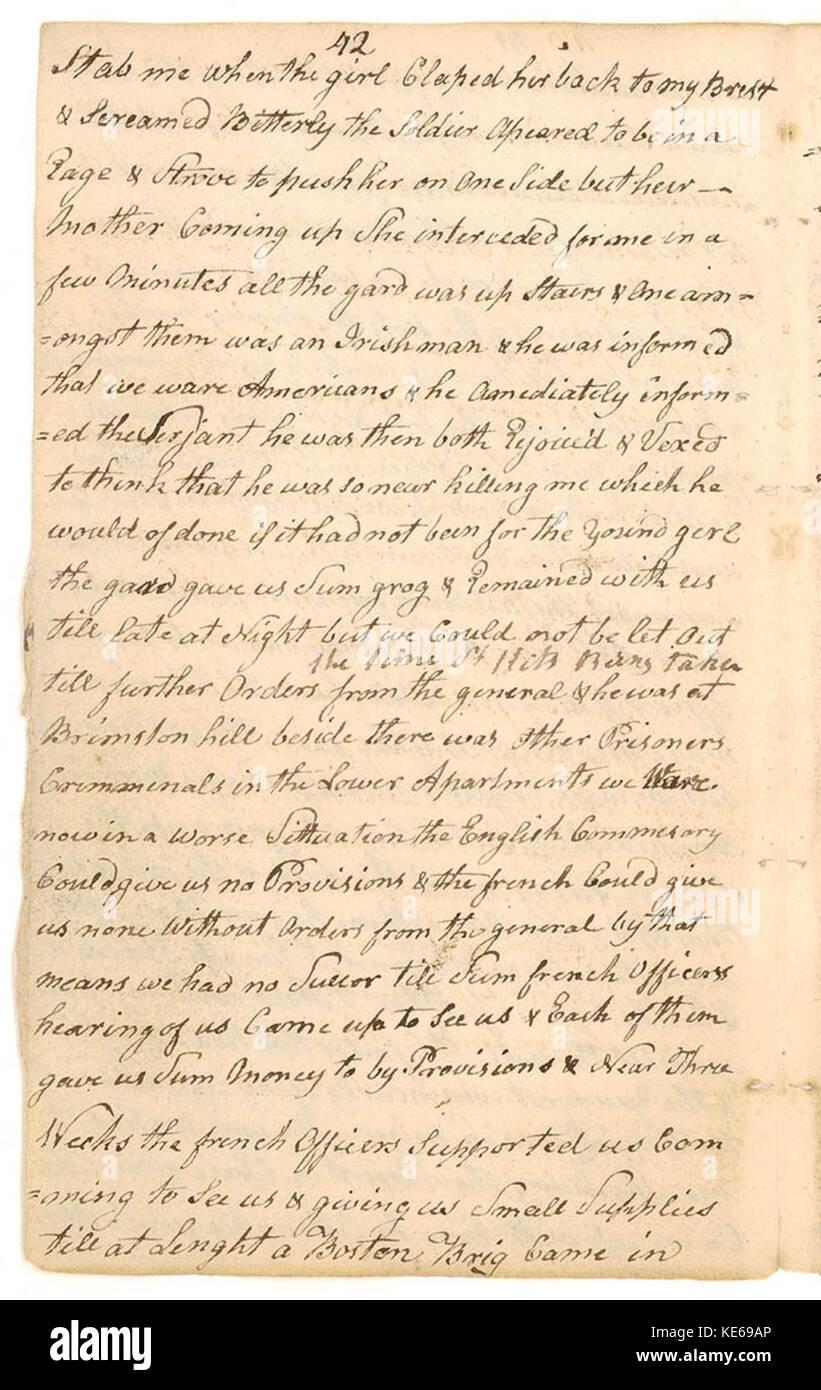 42
Stab me when the girl Claped her back to my Brest
& Screamed Bitterly the Soldier Apeared to be in a
Rage & Strove to push her on One Side but heir —
Mother Coming up She interceded for me in a
few Minutes all the gard was up Stairs & One am=
=ongst them was an Irishman & he was informed
that we ware Americans & he Amediately inform=
=ed the Serjant he was then both Rejoic'd & Vexed
to think that he was so near killing me which he
would of done if it had not been for the Yound girl
the gard gave us Sum grog & Remained with us
till late at Night but we Could not be let Out
the time St Kits Being taken
till further Orders from the general & he was at
Brimston hill beside there was Other Prisoners
Cremmenals in the Lower Apartments we Ware
now in a worse Sittuation the English Commesary
Could give us no Provisions & the french Could give
us none Without Orders from the general by that
means we had no Succor till Sum french Officers
hearing of us Came up to See us & Each of them
gave us Sum Money to by Provisions & Near Three
Weeks the french Officers Supported us Com
=ming to See us & giving us Small Supplies
till at Lenght a Boston Brig Came in
alamy
alamy
alamy
alamy
Image ID: KE69AP
www.alamy.com